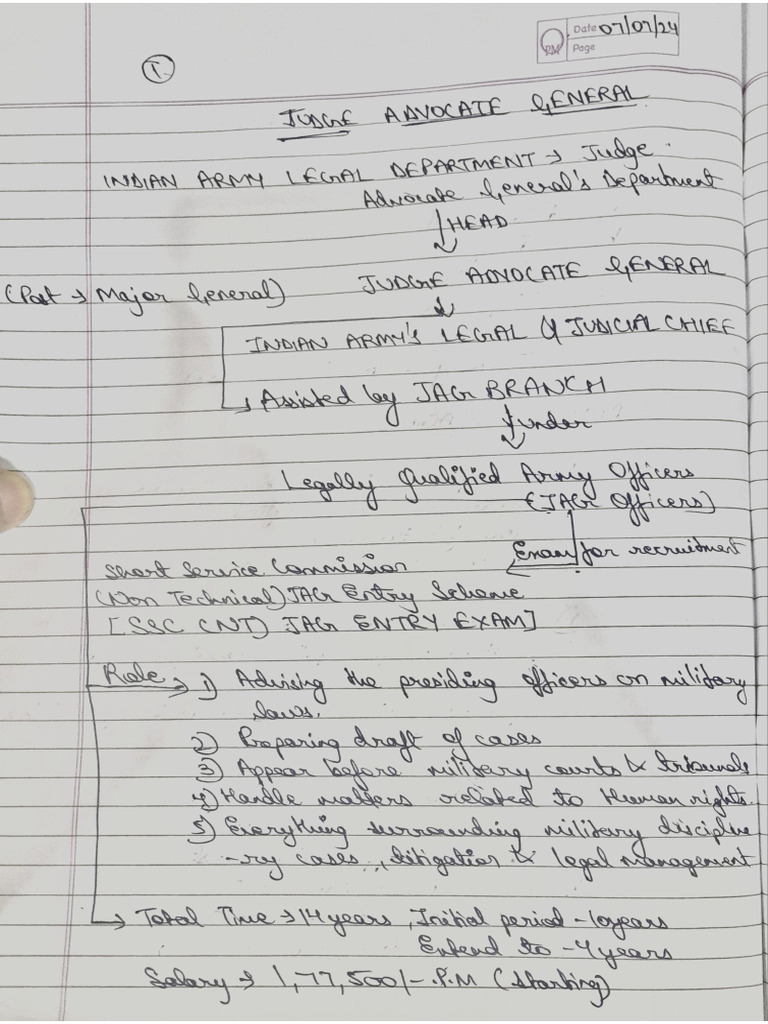 Date 07/07/24
PM Page
1.
JUDGE ADVOCATE GENERAL
INDIAN ARMY LEGAL DEPARTMENT → Judge
Advocate General's Department
↓ HEAD
JUDGE ADVOCATE GENERAL
(Post → Major General)
↓
INDIAN ARMY'S LEGAL & JUDICIAL CHIEF
→ Assisted by JAG BRANCH
↓ under
Legally Qualified Army Officers
[JAG Officers]
Exam for recruitment
Short Service Commission
(Non Technical) JAG Entry Scheme
[SSC (NT) JAG ENTRY EXAM]
Role → 1) Advising the presiding officers on military
laws.
2) Preparing draft of cases
3) Appear before military courts & tribunals
4) Handle matters related to Human rights.
5) Everything surrounding military discipline
-ry cases, litigation & legal management
→ Total Time → 14 years, Initial period - 10 years
Extend to - 4 years
Salary → 1,77,500/- P.M (starting)